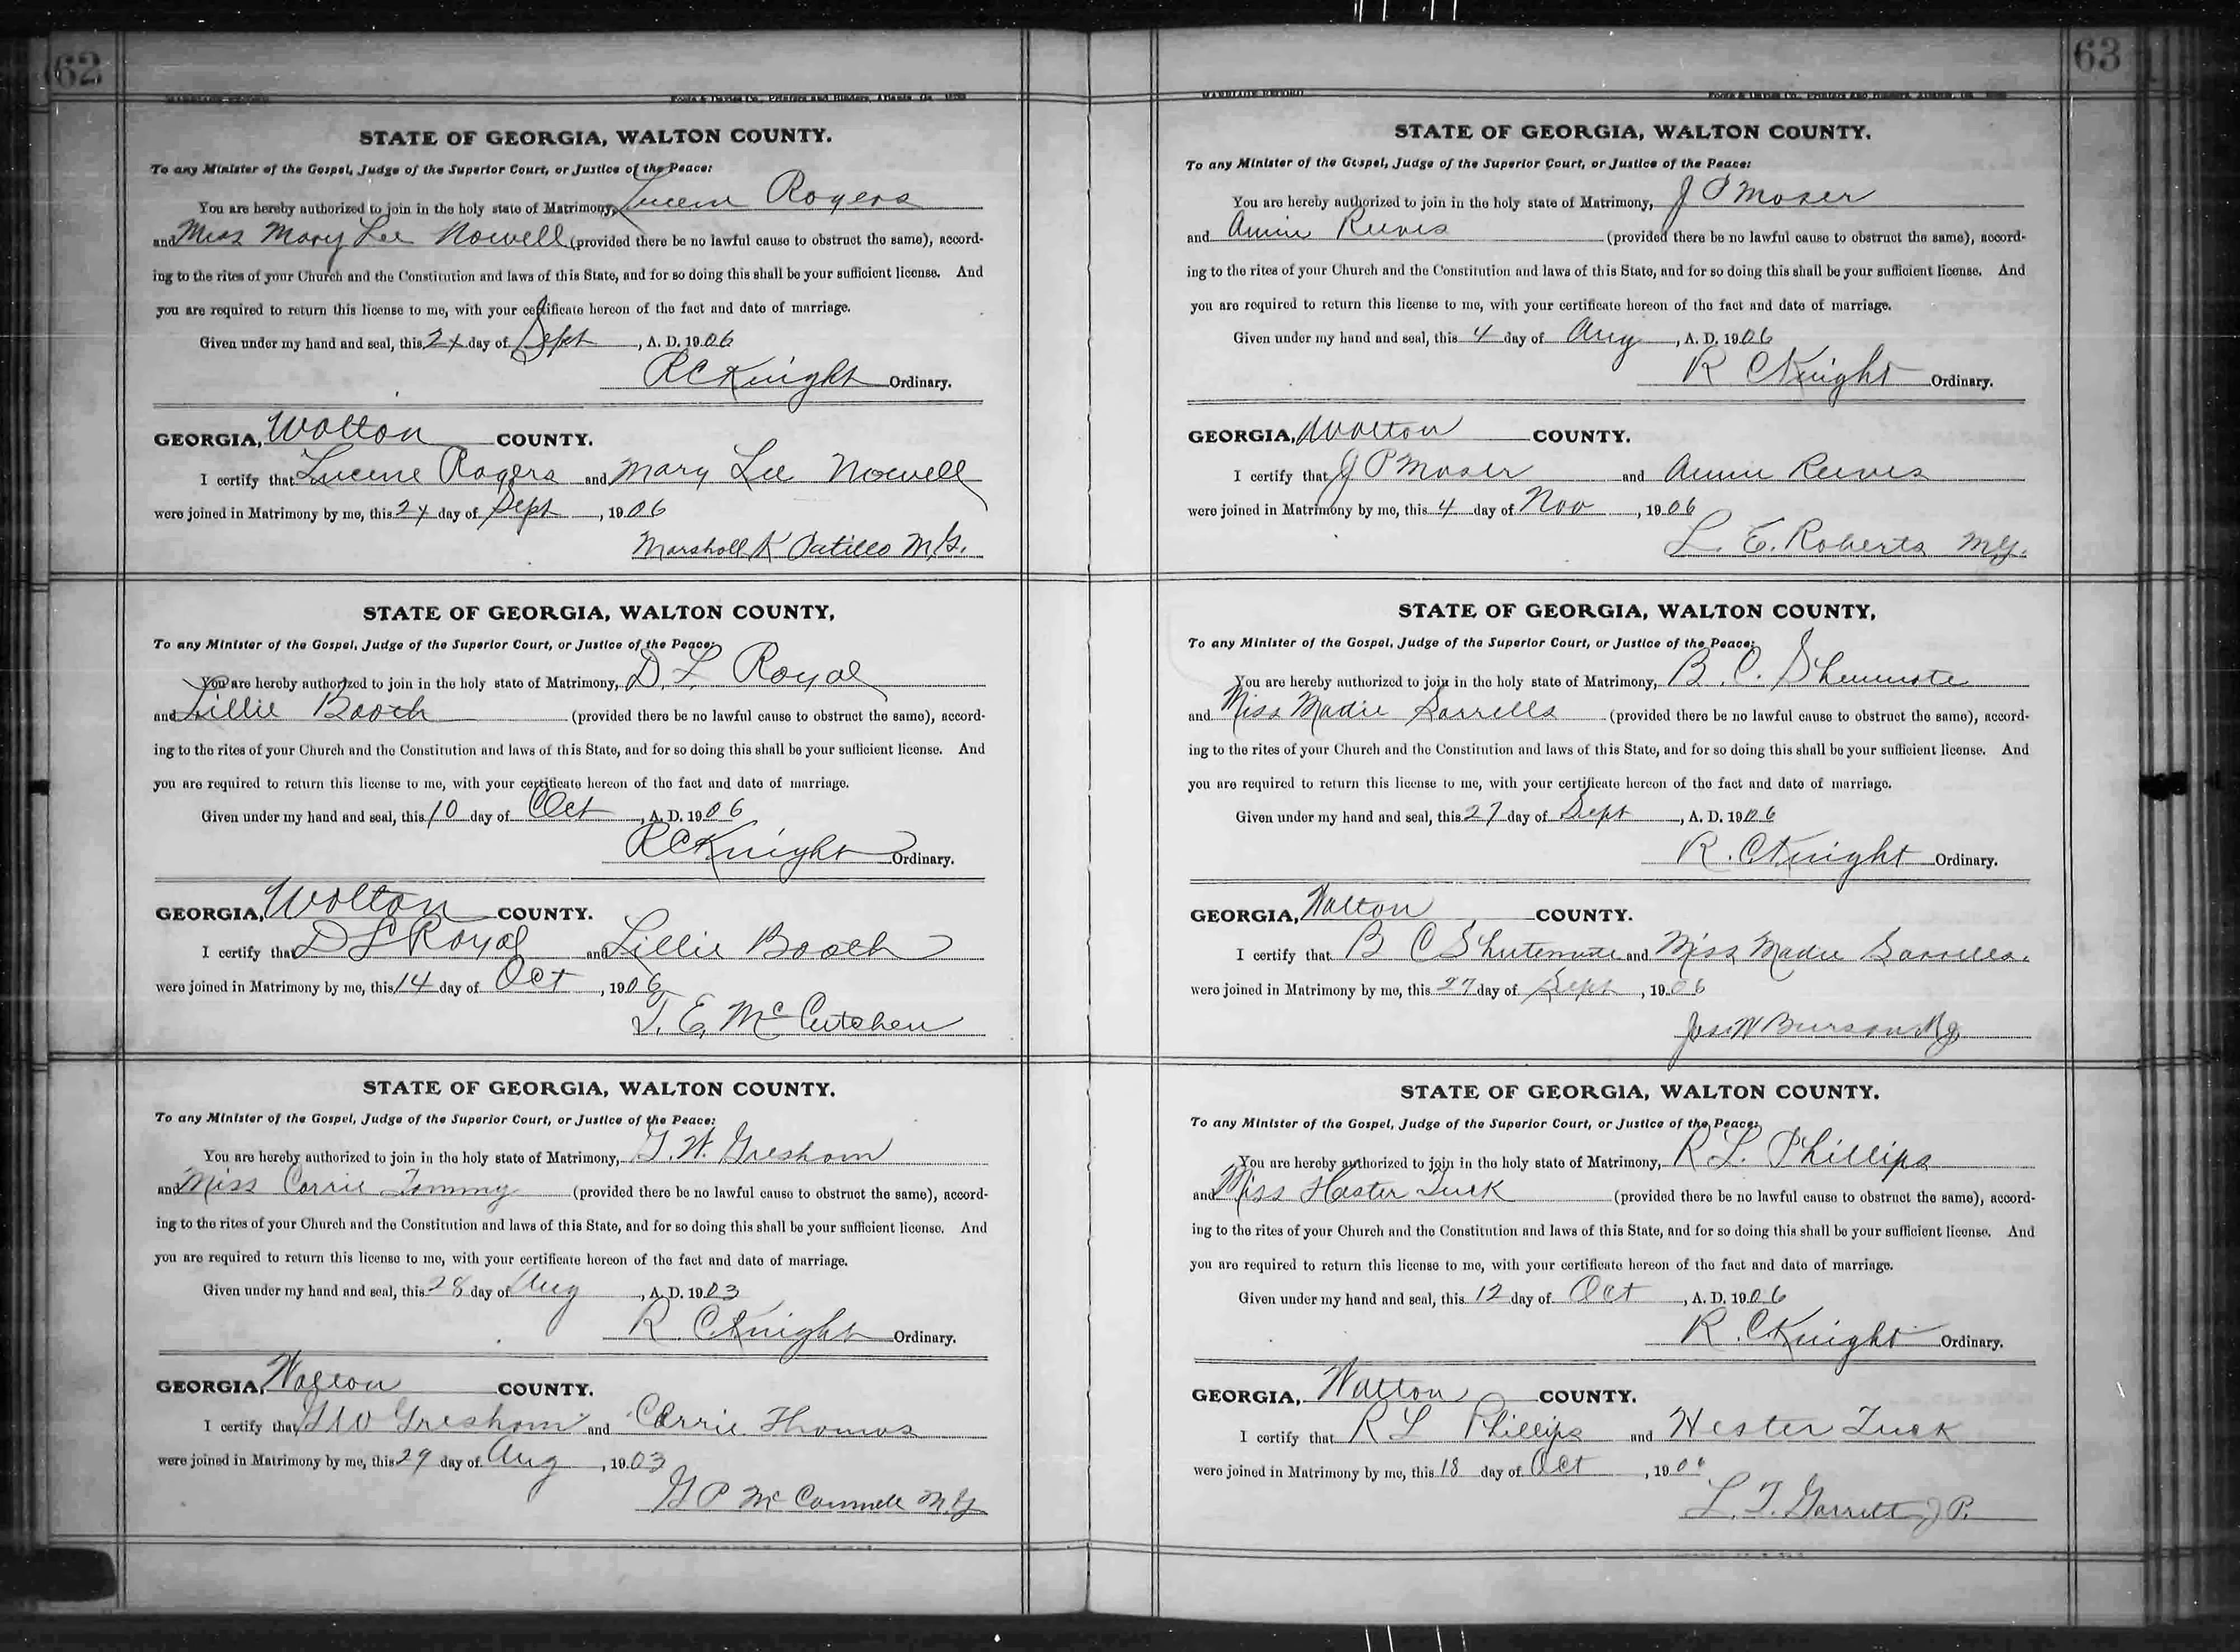 62
MARRIAGE RECORD Foote & Davies Co., Printers and Binders, Atlanta, Ga.
STATE OF GEORGIA, WALTON COUNTY.
To any Minister of the Gospel, Judge of the Superior Court, or Justice of the Peace:
You are hereby authorized to join in the holy state of Matrimony, Lucene Rogers
and Miss Mary Lee Nowell (provided there be no lawful cause to obstruct the same), accord-
ing to the rites of your Church and the Constitution and laws of this State, and for so doing this shall be your sufficient license. And
you are required to return this license to me, with your certificate hereon of the fact and date of marriage.
Given under my hand and seal, this day of Sept, A. D. 1906
R C Knight Ordinary.
GEORGIA, Walton COUNTY.
I certify that Lucene Rogers and Mary Lee Nowell
were joined in Matrimony by me, this day of Sept, 1906
Marshall K Patillo M.G.
STATE OF GEORGIA, WALTON COUNTY,
To any Minister of the Gospel, Judge of the Superior Court, or Justice of the Peace:
You are hereby authorized to join in the holy state of Matrimony, D. L. Royal
and Lillie Booth (provided there be no lawful cause to obstruct the same), accord-
ing to the rites of your Church and the Constitution and laws of this State, and for so doing this shall be your sufficient license. And
you are required to return this license to me, with your certificate hereon of the fact and date of marriage.
Given under my hand and seal, this 10 day of Oct, A. D. 1906
R C Knight Ordinary.
GEORGIA, Walton COUNTY.
I certify that D L Royal and Lillie Booth
were joined in Matrimony by me, this 14 day of Oct, 1906
T. E. McCutchen
STATE OF GEORGIA, WALTON COUNTY.
To any Minister of the Gospel, Judge of the Superior Court, or Justice of the Peace:
You are hereby authorized to join in the holy state of Matrimony, G. W. Gresham
and Miss Carrie Tommy (provided there be no lawful cause to obstruct the same), accord-
ing to the rites of your Church and the Constitution and laws of this State, and for so doing this shall be your sufficient license. And
you are required to return this license to me, with your certificate hereon of the fact and date of marriage.
Given under my hand and seal, this 28 day of Aug, A. D. 1903
R. C Knight Ordinary.
GEORGIA, Walton COUNTY.
I certify that G W Gresham and Carrie Thomas
were joined in Matrimony by me, this 29 day of Aug, 1903
G P McConnell M.G
63
MARRIAGE RECORD Foote & Davies Co., Printers and Binders, Atlanta, Ga.
STATE OF GEORGIA, WALTON COUNTY.
To any Minister of the Gospel, Judge of the Superior Court, or Justice of the Peace:
You are hereby authorized to join in the holy state of Matrimony, J P Moser
and Annie Reeves (provided there be no lawful cause to obstruct the same), accord-
ing to the rites of your Church and the Constitution and laws of this State, and for so doing this shall be your sufficient license. And
you are required to return this license to me, with your certificate hereon of the fact and date of marriage.
Given under my hand and seal, this 4 day of Aug, A. D. 1906
R C Knight Ordinary.
GEORGIA, Walton COUNTY.
I certify that J P Moser and Annie Reeves
were joined in Matrimony by me, this 4 day of Nov, 1906
L. E. Roberts M.G.
STATE OF GEORGIA, WALTON COUNTY,
To any Minister of the Gospel, Judge of the Superior Court, or Justice of the Peace:
You are hereby authorized to join in the holy state of Matrimony, B. C.
and Miss Madie Sorrells (provided there be no lawful cause to obstruct the same), accord-
ing to the rites of your Church and the Constitution and laws of this State, and for so doing this shall be your sufficient license. And
you are required to return this license to me, with your certificate hereon of the fact and date of marriage.
Given under my hand and seal, this 27 day of Sept, A. D. 1906
R. C Knight Ordinary.
GEORGIA, Walton COUNTY.
I certify that B C and Miss Madie Sorrells.
were joined in Matrimony by me, this 27 day of Sept, 1906
Jas. W Burson M.G
STATE OF GEORGIA, WALTON COUNTY.
To any Minister of the Gospel, Judge of the Superior Court, or Justice of the Peace:
You are hereby authorized to join in the holy state of Matrimony, R L. Phillips
and Miss Hester Tuck (provided there be no lawful cause to obstruct the same), accord-
ing to the rites of your Church and the Constitution and laws of this State, and for so doing this shall be your sufficient license. And
you are required to return this license to me, with your certificate hereon of the fact and date of marriage.
Given under my hand and seal, this 12 day of Oct, A. D. 1906
R. C Knight Ordinary.
GEORGIA, Walton COUNTY.
I certify that R L Phillips and Hester Tuck
were joined in Matrimony by me, this 18 day of Oct, 1906
L. T. Garrett J P.